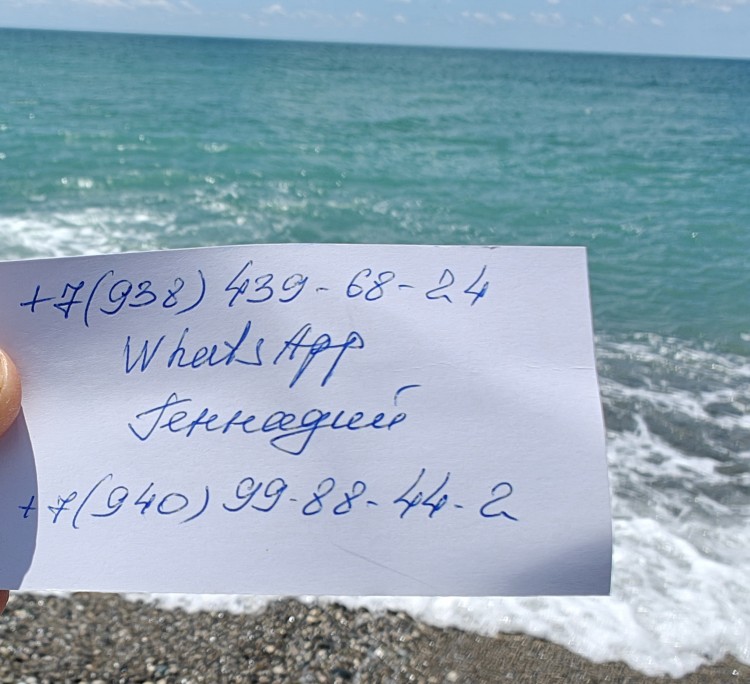 +7(938) 439-68-24
WhatsApp
Геннадий
+7(940) 99-88-44-2